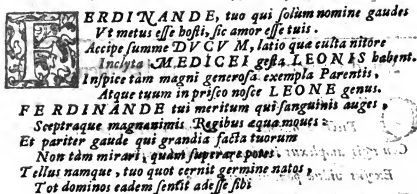 FERDINANDE, tuo qui solum nomine gaudes
Vt metus esse hosti, sic amor esse tuis.
Accipe summe DVCVM, latio quæ culta nitore
Inclyta MEDICEI gesta LEONIS habent.
Inspice tam magni generosa exempla Parentis,
Atque tuum in prisco nosce LEONE genus.
FERDINANDE tui meritum qui sanguinis auges,
Sceptraque magnanimis Regibus æqua moues:
Et pariter gaude qui grandia facta tuorum
Non tàm mirari, quàm superare potes.
Tellus namque, tuo quot cernit germine natos,
Tot dominos eadem sentit adesse sibi